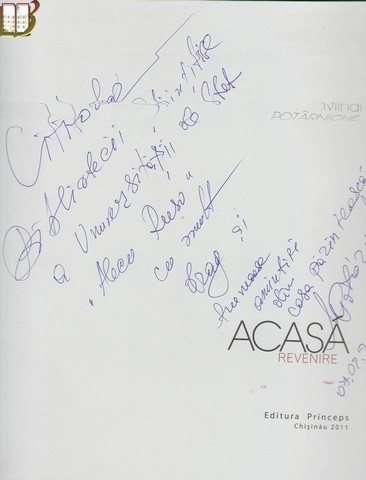 Mihai
POTÂRNICHE
Cititorilor
Bibliotecii științifice
a Universității de Stat
"Alecu Russo"
cu mult
drag și
frumoase
amintiri
din
casa părintească
ACASĂ
REVENIRE
Editura Princeps
Chișinău 2011